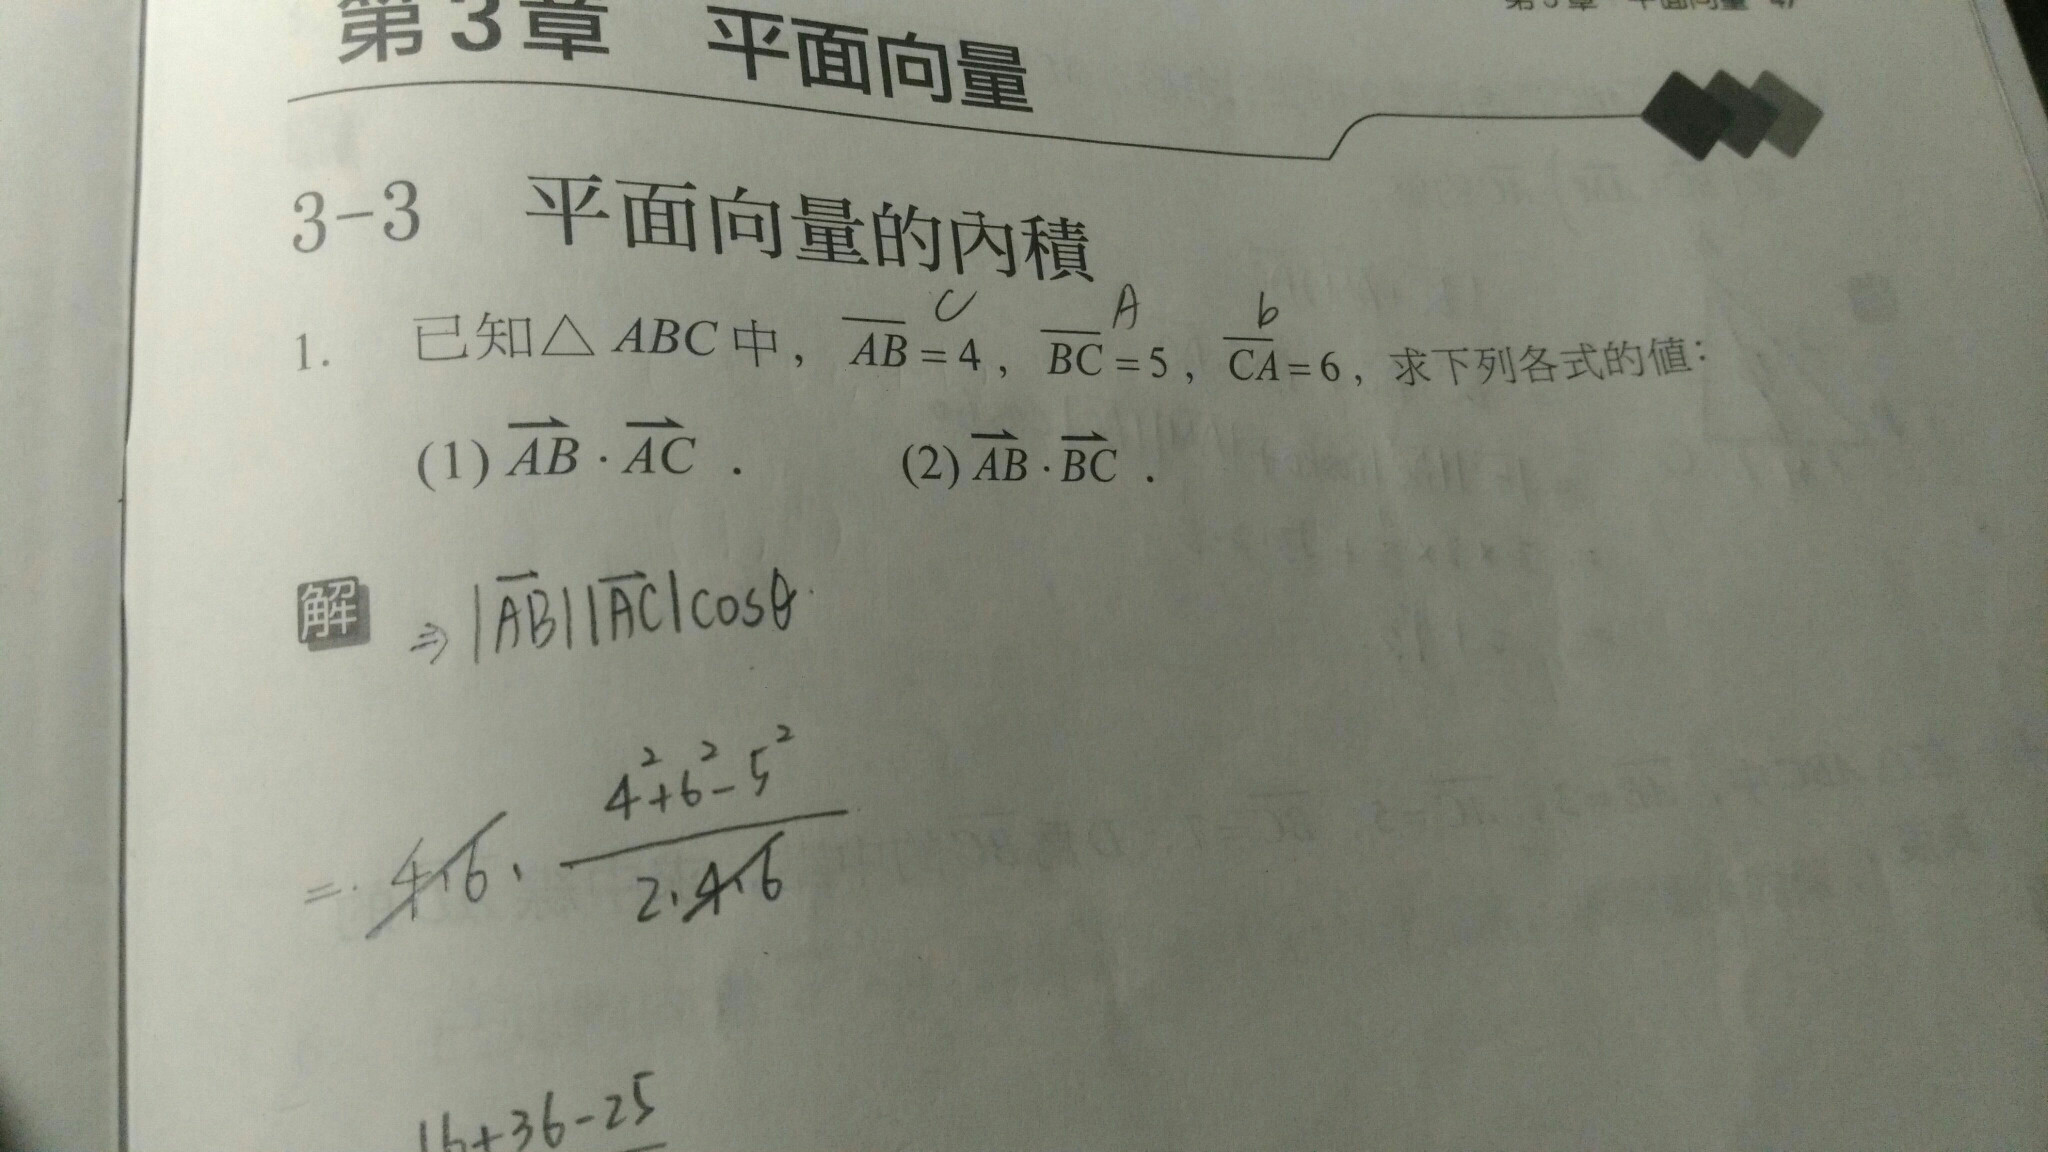 第3章 平面向量
3-3 平面向量的內積
C A b
1. 已知△ABC中，AB=4，BC=5，CA=6，求下列各式的值：
(1) AB．AC． (2) AB．BC．
解 ⇒ |AB||AC|cosθ
4²+6²-5²
= 4·6·
2·4·6
16+36-25